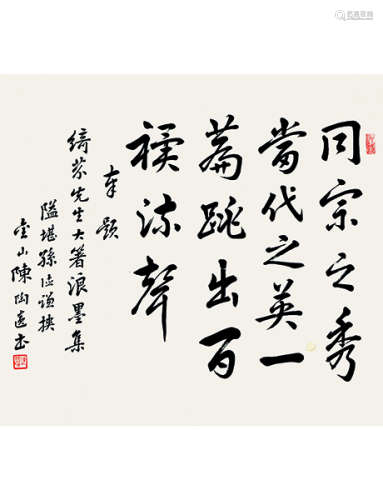 同宗之秀
當代之英一
篇跳出百
禩流聲
奉題
綺芬先生大箸浪墨集
隘堪孫德謙撰
金山陳陶遺書